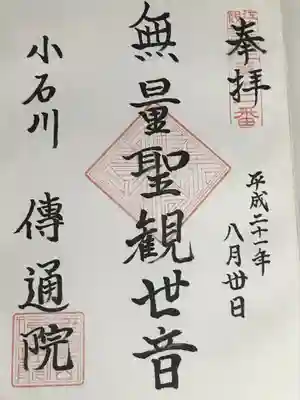 奉拝
平成二十一年
八月丗日
無量聖観世音
小石川
傳通院